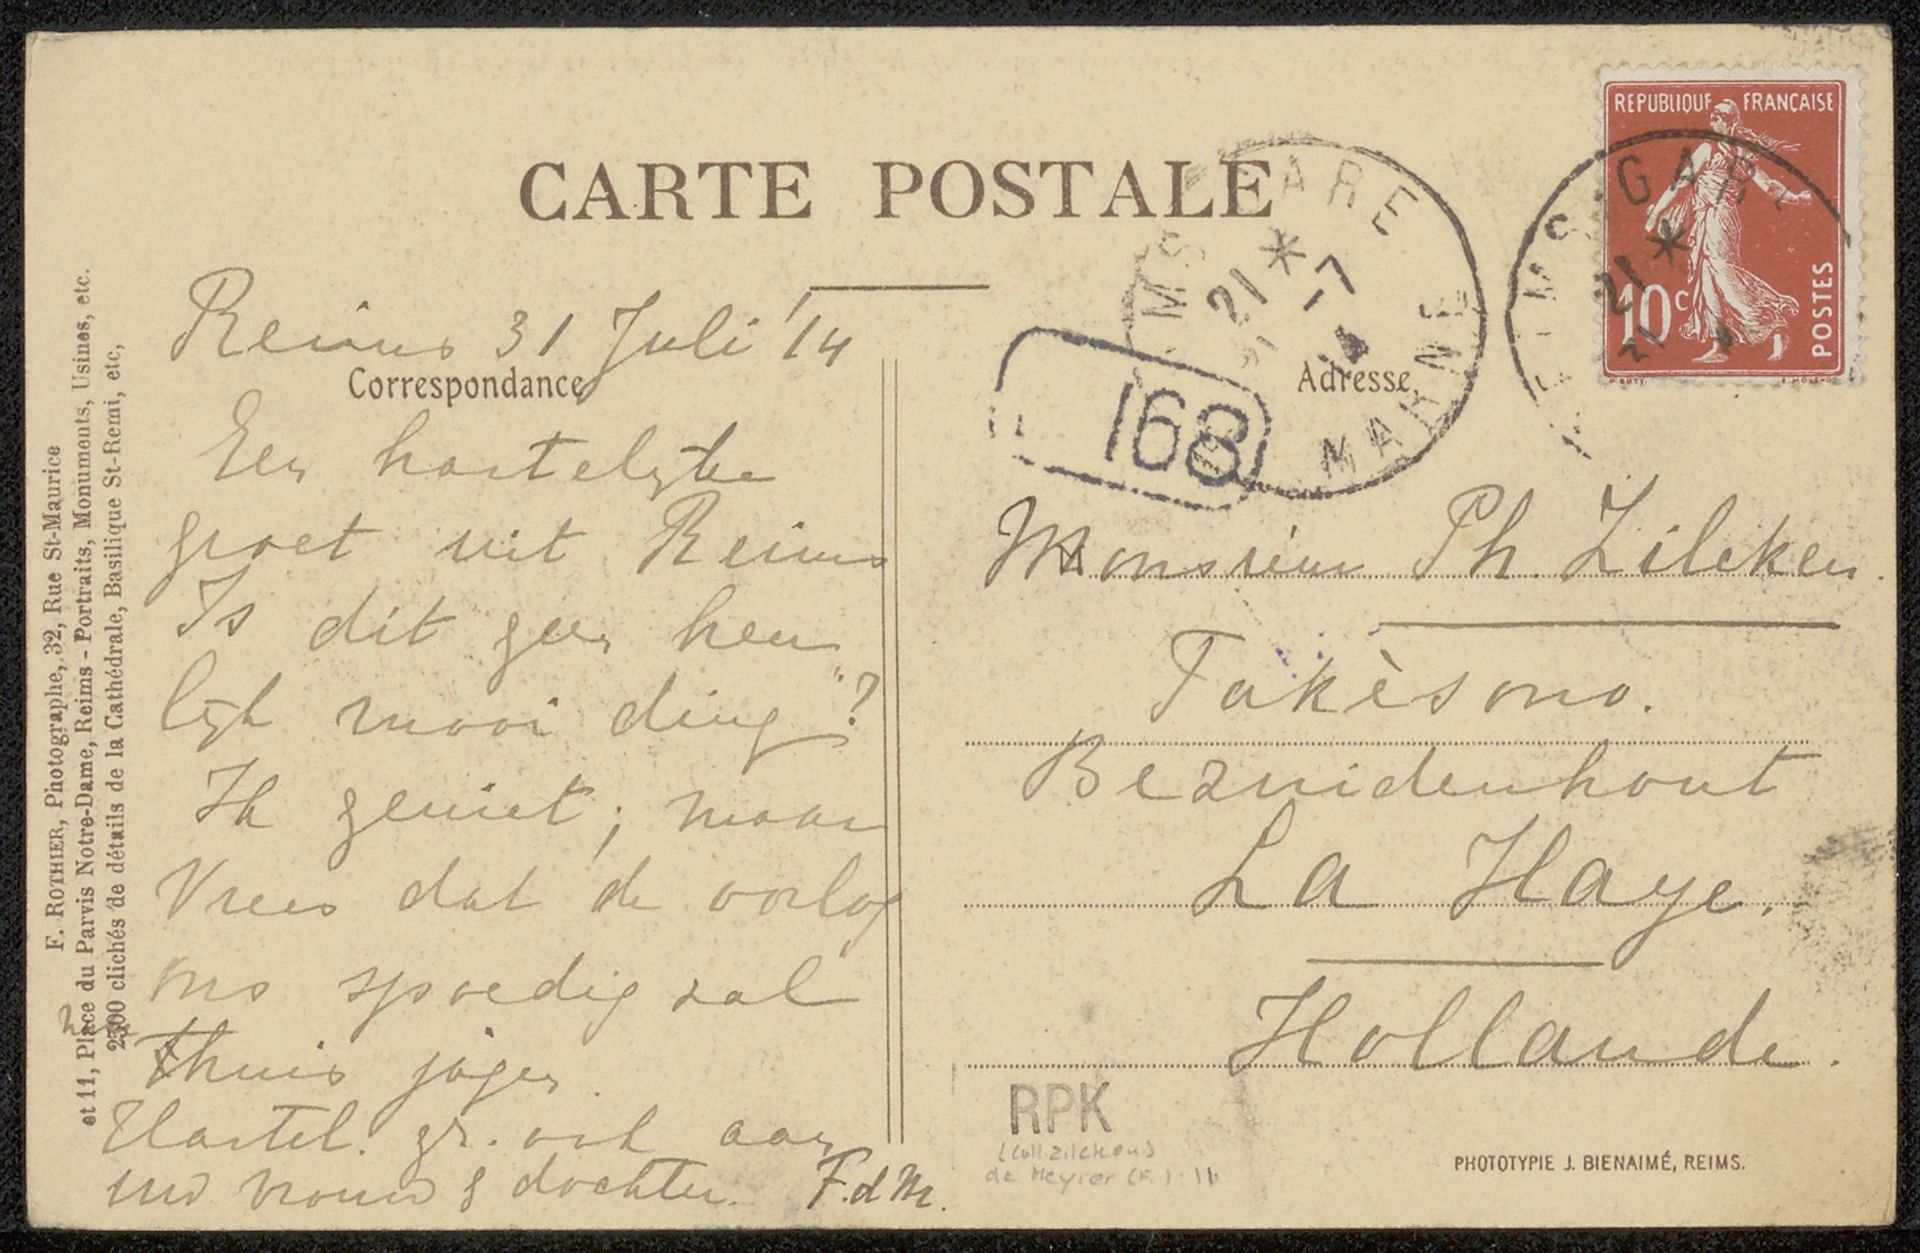 CARTE POSTALE
REPUBLIQUE FRANÇAISE
10c
POSTES
REIMS GARE
21 *
REIMS GARE
21 * -7 14
MARNE
168
Correspondance
Adresse
Reims 31 Juli '14
Een hartelyke
groet uit Reims
Is dit geen heer
lyk mooi ding"?
Ik geniet; maar
Vrees dat de oorlog
ons spoedig zal
thuis jagen.
Hartel. gr. ook aan
uw vrouw & dochter. F.d M.
Monsieur Ph. Zilcken.
Bezuidenhout
La Haye.
Hollande.
RPK
(coll. zilcken)
de Meyier (F.) 1b
PHOTOTYPIE J. BIENAIMÉ, REIMS.
F. ROTHIER, Photographe, 32, Rue St-Maurice
et 11, Place du Parvis Notre-Dame, Reims - Portraits, Monuments, Usines, etc.
2500 clichés de détails de la Cathédrale, Basilique St-Remi, etc,